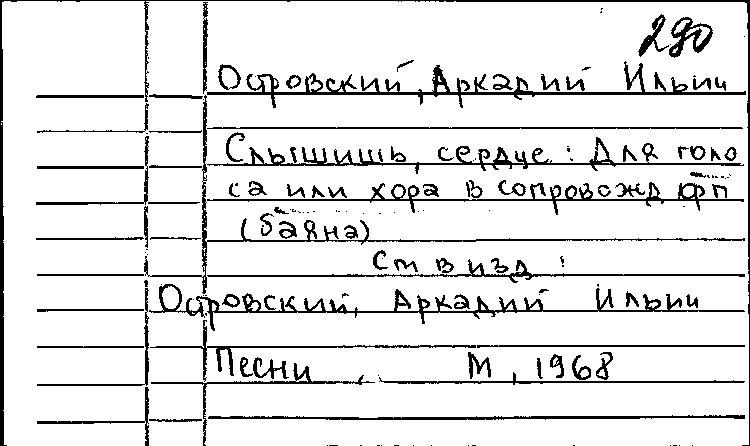 290
Островский, Аркадий Ильич
Слышишь, сердце : Для голо
са или хора в сопровожд фп
(баяна)
См в изд :
Островский, Аркадий Ильич
Песни , М, 1968